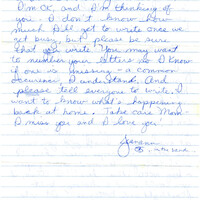 I'm OK, and I'm thinking of
you. I don't know how
much I'll get to write once we
get busy, but please be sure
that you write. You may want
to number your letters so I know
if one is missing - a common
occurency, I understand. And
please tell everyone to write. I
want to know what's happening
back at home. Take care Mom.
I miss you and I love you!